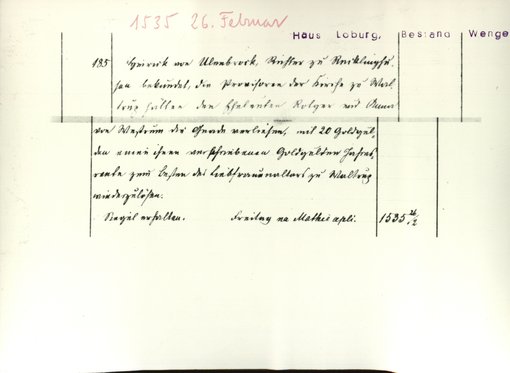 1535 26. Februar
Haus Loburg, Bestand Wenge
185 Heinrich von Ulenbrock, Richter zu Recklinghu-
sen bekundet, die Provisoren der Kirche zu Wal-
trup hätten den Eheleuten Rotger und Anna
von Westrum die Gnade verliehen, mit 20 Goldgul-
den einen ihnen verschriebenen Goldgulden Jahres-
rente zum Besten des Liebfrauenaltars zu Waltrup
wiederzulösen.
Siegel erhalten. Freitag na Mathei apli. 1535 26/2